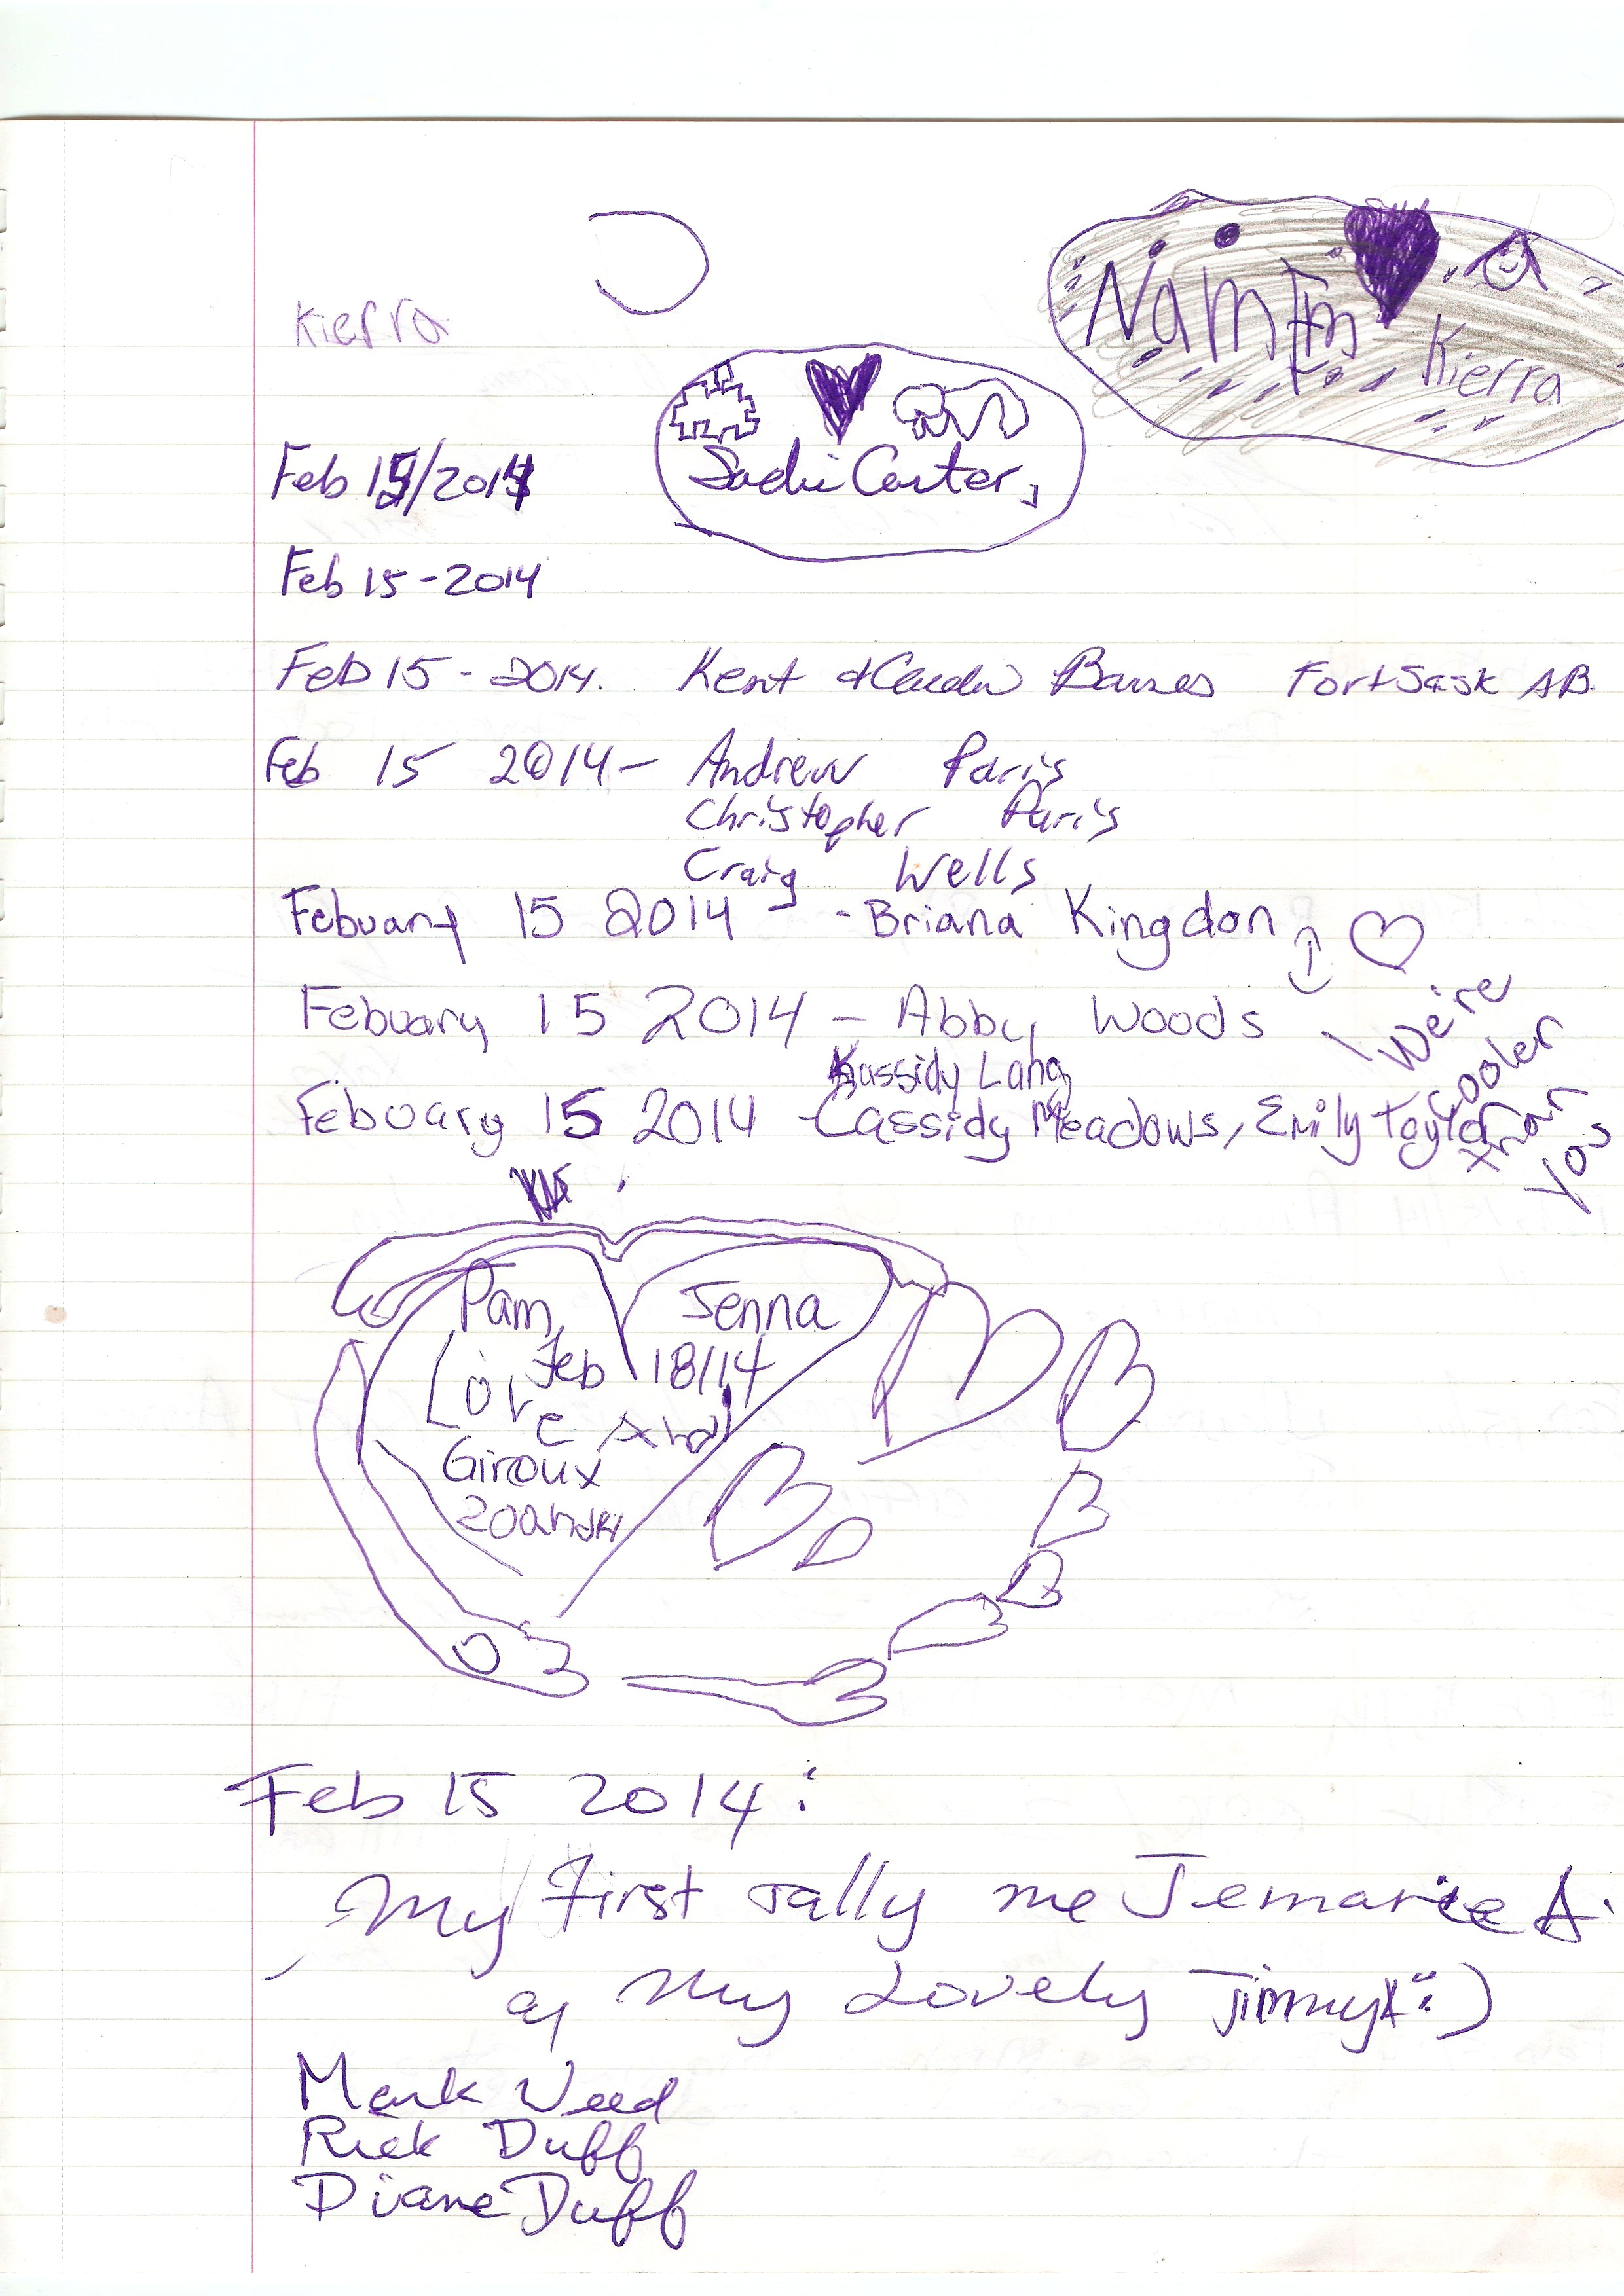 Kierra
Kierra
Feb 15/2014
Sadie Carter
Feb 15-2014
Feb 15 - 2014. Kent & Barnes Fort Sask AB.
Feb 15 2014 - Andrew Paris
Christopher Paris
Craig Wells
Febuary 15 2014 - Briana Kingdon
Febuary 15 2014 - Abby Woods
We're cooler than you
Kassidy Lang
Febuary 15 2014 - Cassidy Meadows, Emily Taylor
Pam Jenna
Feb 18/14
Love
Giroux
Feb 15 2014:
My First rally me Jemarie A.
My Lovely Jimmy :)
Mark Weed
Rick Duff
Diane Duff